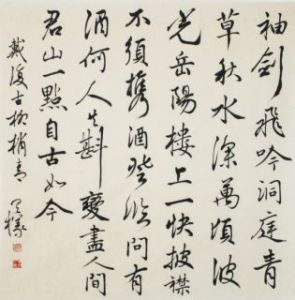 袖劍飛吟洞庭青
草秋水深萬頃波
光岳陽樓上一快披襟
不須携酒登臨問有
酒何人共斟變盡人間
君山一點自古如今
戴復古柳梢青